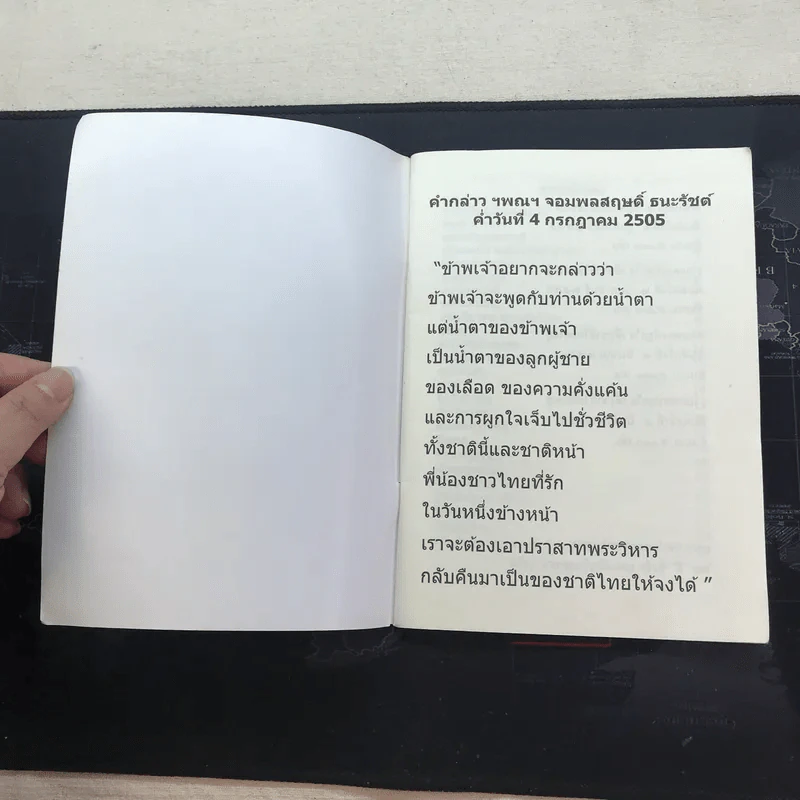 คำกล่าว ฯพณฯ จอมพลสฤษดิ์ ธนะรัชต์
ค่ำวันที่ 4 กรกฎาคม 2505
“ข้าพเจ้าอยากจะกล่าวว่า
ข้าพเจ้าจะพูดกับท่านด้วยน้ำตา
แต่น้ำตาของข้าพเจ้า
เป็นน้ำตาของลูกผู้ชาย
ของเลือด ของความคั่งแค้น
และการผูกใจเจ็บไปชั่วชีวิต
ทั้งชาตินี้และชาติหน้า
พี่น้องชาวไทยที่รัก
ในวันหนึ่งข้างหน้า
เราจะต้องเอาปราสาทพระวิหาร
กลับคืนมาเป็นของชาติไทยให้จงได้ ”